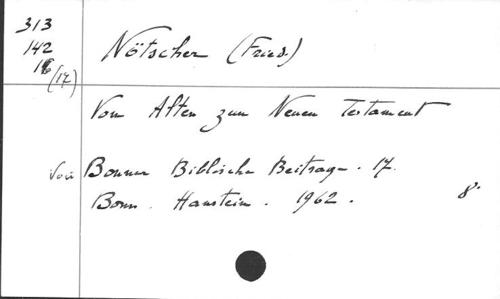 313
142
16
(17)
Nötscher (Fried.)
Vom Alten zum Neuen Testament
Voir Bonner Biblische Beitrage. 17.
Bonn. Hanstein. 1962. 8°